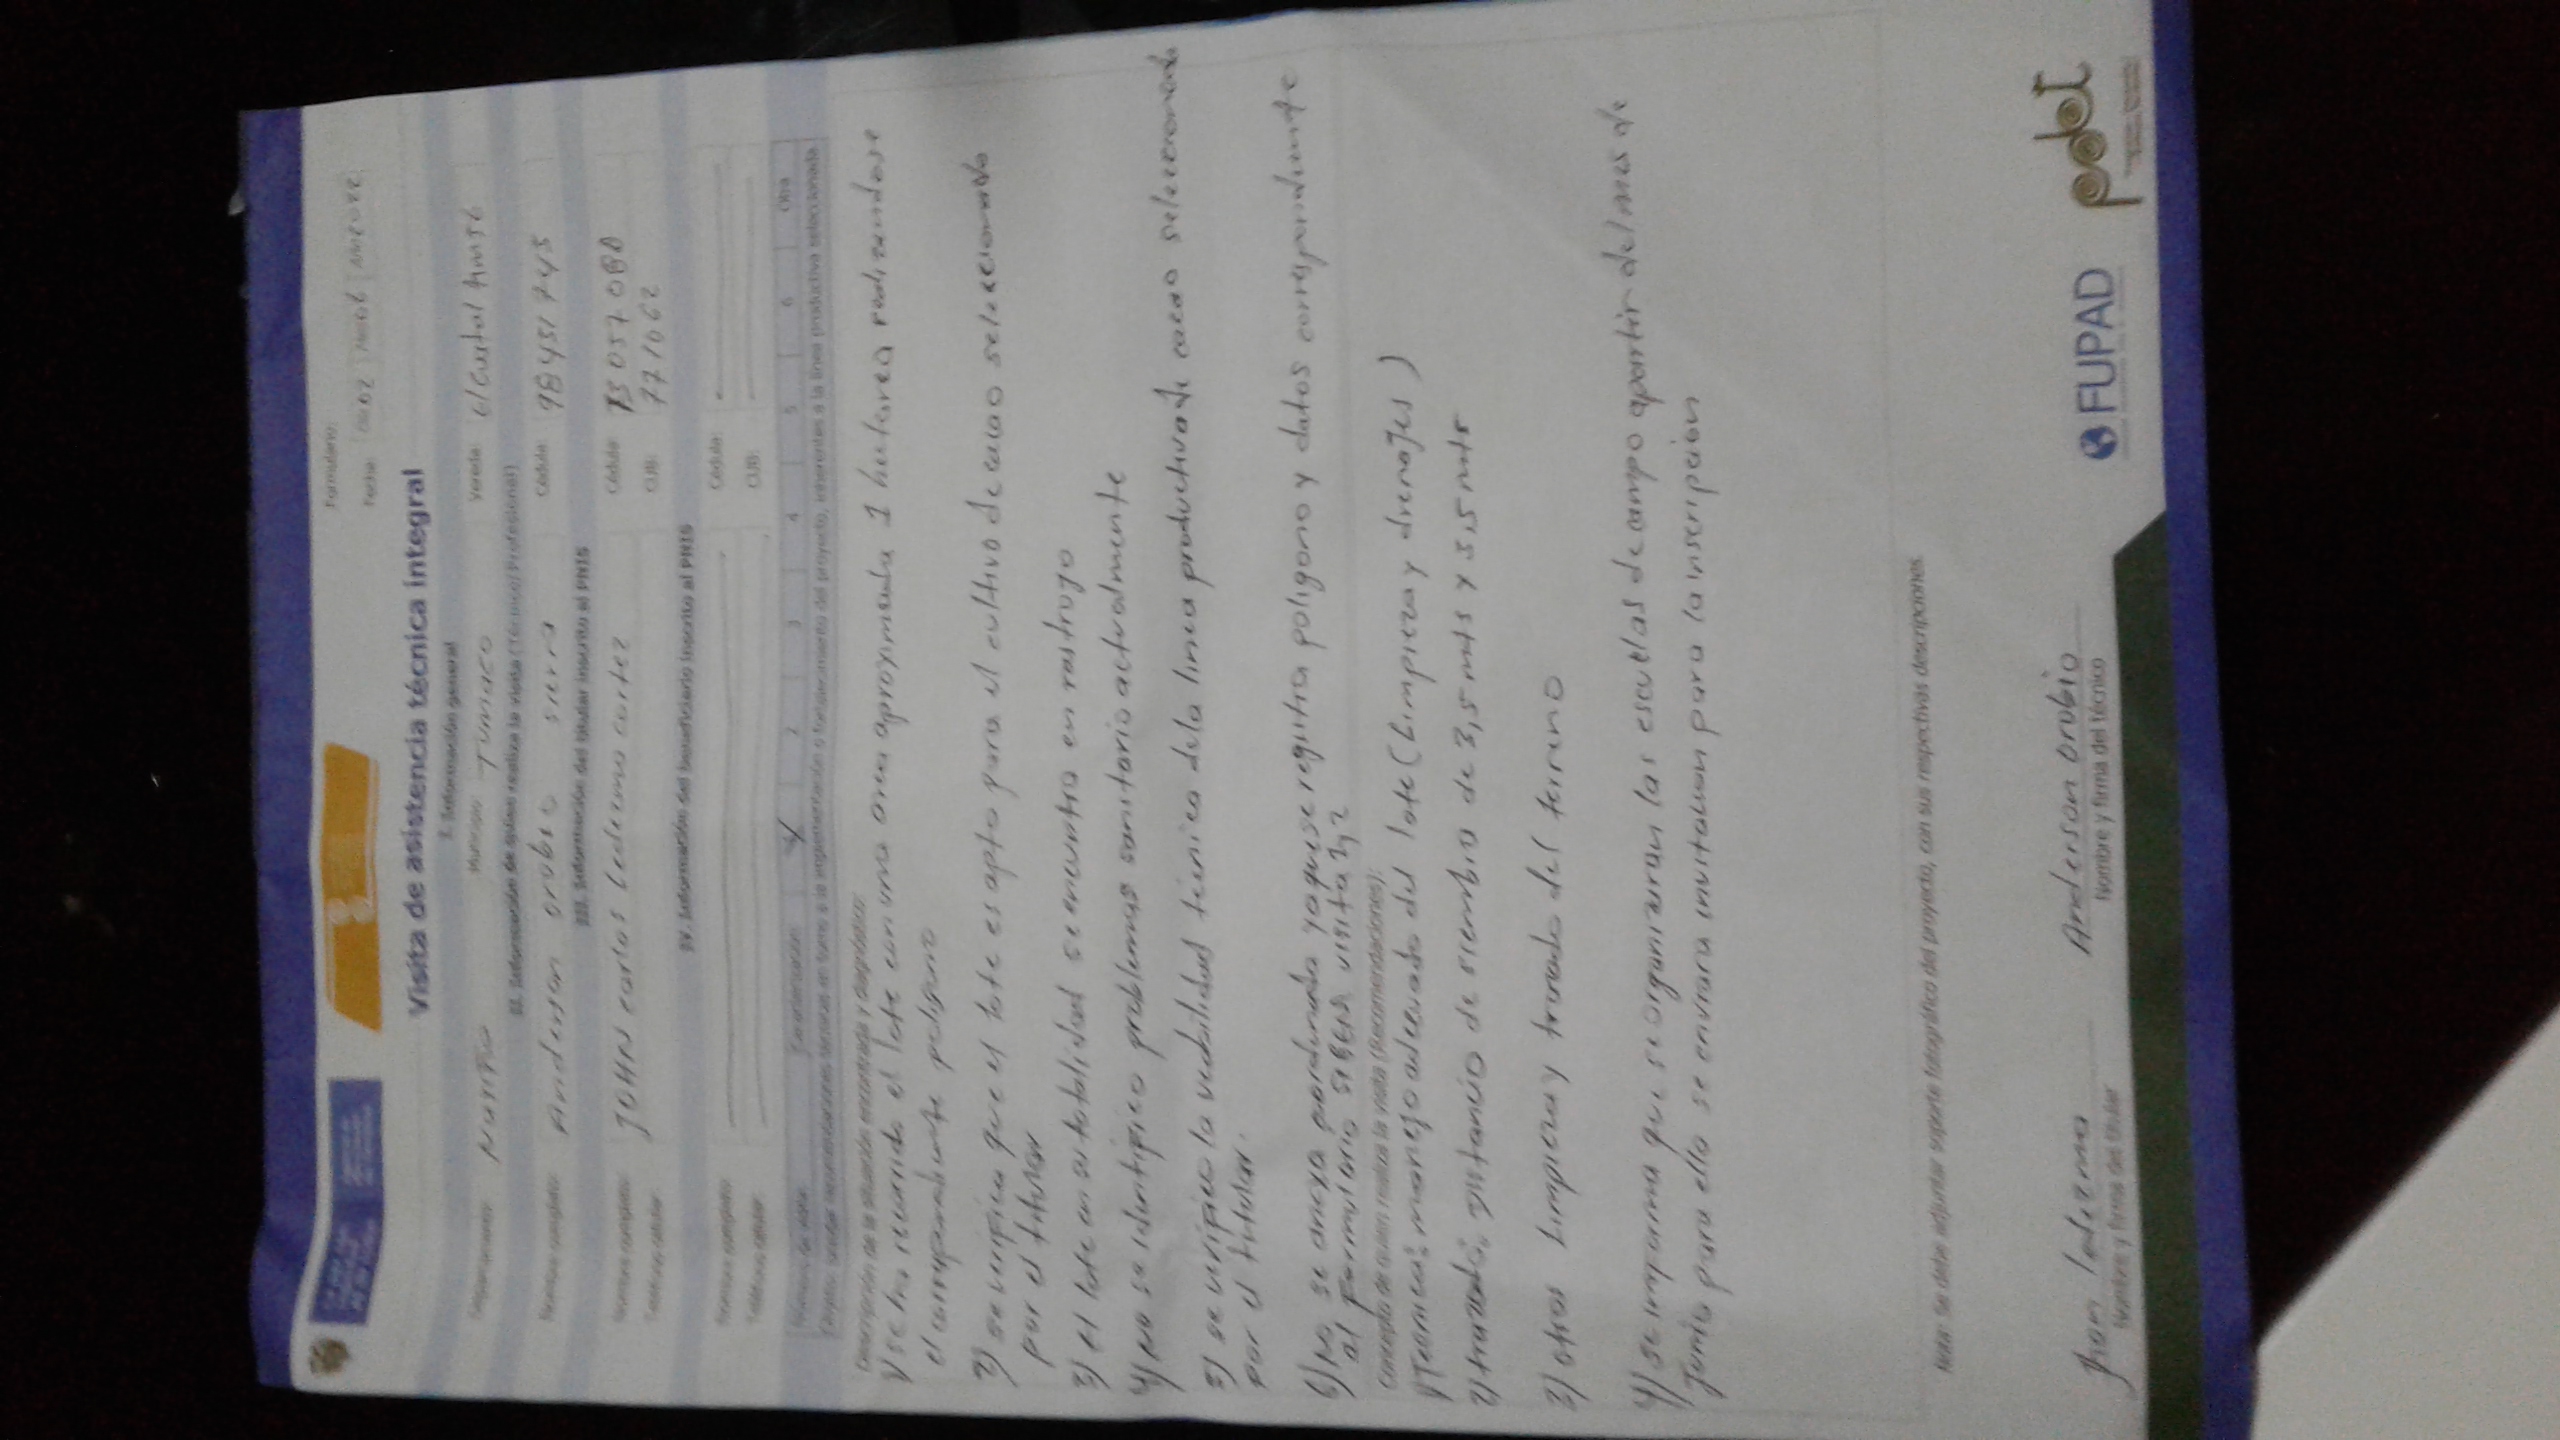 Formulario:
Fecha: Día 02 Mes 06 Año 2022
Visita de asistencia técnica integral
I. Información general
Departamento: Nariño Municipio: Tumaco Vereda:
II. Información de quien realiza la visita (Técnico/Profesional)
Nombre completo: Anderson orobio sierra Cédula: 98451745
III. Información del titular inscrito al PNIS
Nombre completo: JOHN carlos Ledezma cortez Cédula:
Teléfono celular: CUB: 771062
IV. Información del beneficiario inscrito al PNIS
Nombre completo: Cédula:
Teléfono celular: CUB:
Número de visita: Caracterización: X 2 3 4 5 6 Otra
Objeto: brindar recomendaciones técnicas en torno a la implementación o fortalecimiento del proyecto, inherentes a la línea productiva seleccionada.
Descripción de la situación encontrada y diagnóstico:
1) se ha recorrido el lote con una area aproximada 1 hectarea realizandose
el correspondiente poligono
2) se verifica que el lote es apto para el cultivo de cacao seleccionado
por el titular
3) el lote en su totalidad se encuentra en rastrojo
4) no se identifico problemas sanitario actualmente
5) se verifico la viabilidad tecnica dela linea productiva de cacao seleccionada
por el titular.
6) No se anexa georeferenciado ya que se registra poligono y datos correspondiente
al formulario visita 1,2
Concepto de quien realiza la visita (Recomendaciones):
1) Tecnicas manejo adecuado del lote (Limpieza y drenajes)
2) trazado: Distancia de siembra de 3,5 mts x 3,5 mts
3) otras limpieza y trazado del terreno
4) se informa que se organizaran las escuelas de campo apartir del mes de
Junio para ello se enviara invitacion para la inscripcion
Nota: Se debe adjuntar soporte fotográfico del proyecto, con sus respectivas descripciones.
Jhon ledezma
Nombre y firma del titular
Anderson orobio
Nombre y firma del técnico
FUPAD
pdet